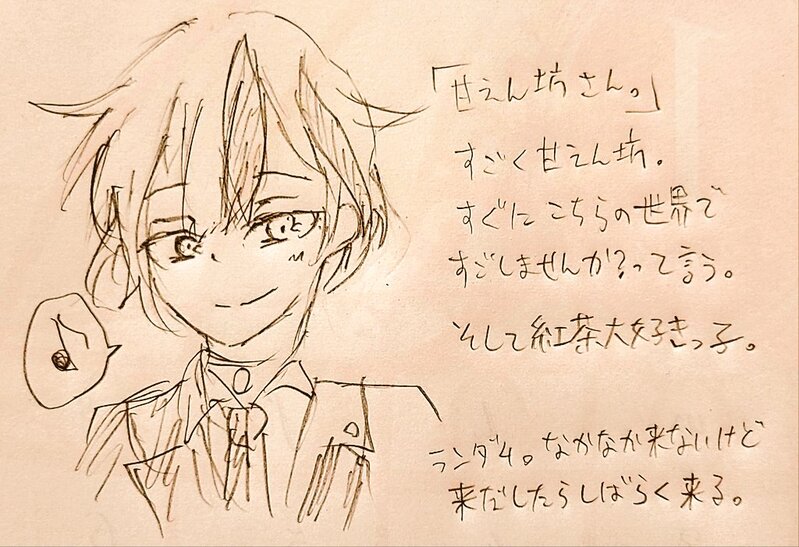 「甘えん坊さん。」
すごく甘えん坊。
すぐにこちらの世界で
すごしませんか?って言う。
そして紅茶大好きっ子。
ランダム。なかなか来ないけど
来だしたらしばらく来る。